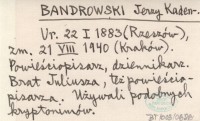 BANDROWSKI Jerzy Kaden-
Ur. 22 I 1883 (Rzeszów),
zm. 21 VIII 1940 (Kraków).
Powieściopisarz, dziennikarz.
Brat Juliusza, też powieścio-
pisarza. Używali podobnych
kryptonimów.